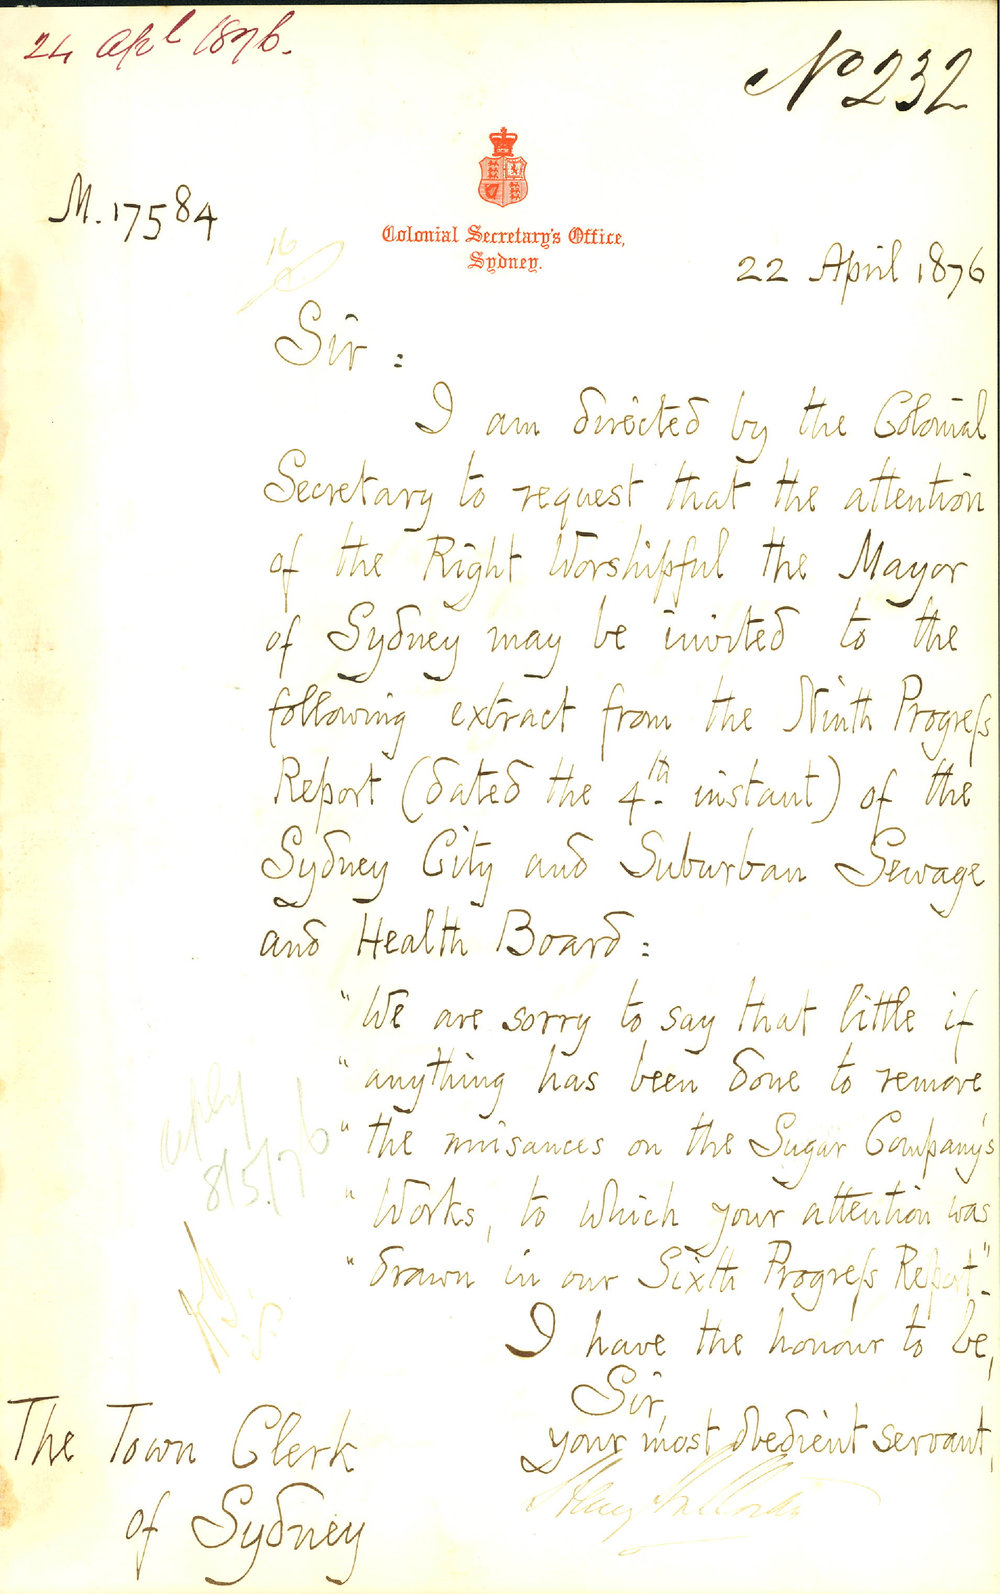 24 Apl 1876.
No 232
M. 17584
Colonial Secretary's Office,
Sydney.
22 April 1876
Sir :
I am directed by the Colonial
Secretary to request that the attention
of the Right Worshipful the Mayor
of Sydney may be invited to the
following extract from the Ninth Progress
Report (dated the 4th instant) of the
Sydney City and Suburban Sewage
and Health Board :
"We are sorry to say that little if
"anything has been done to remove
"the nuisances on the Sugar Company's
"Works, to which your attention was
"drawn in our Sixth Progress Report".
8/5/76
I have the honour to be,
Sir,
your most obedient servant,
Henry Halloran
The Town Clerk
of Sydney